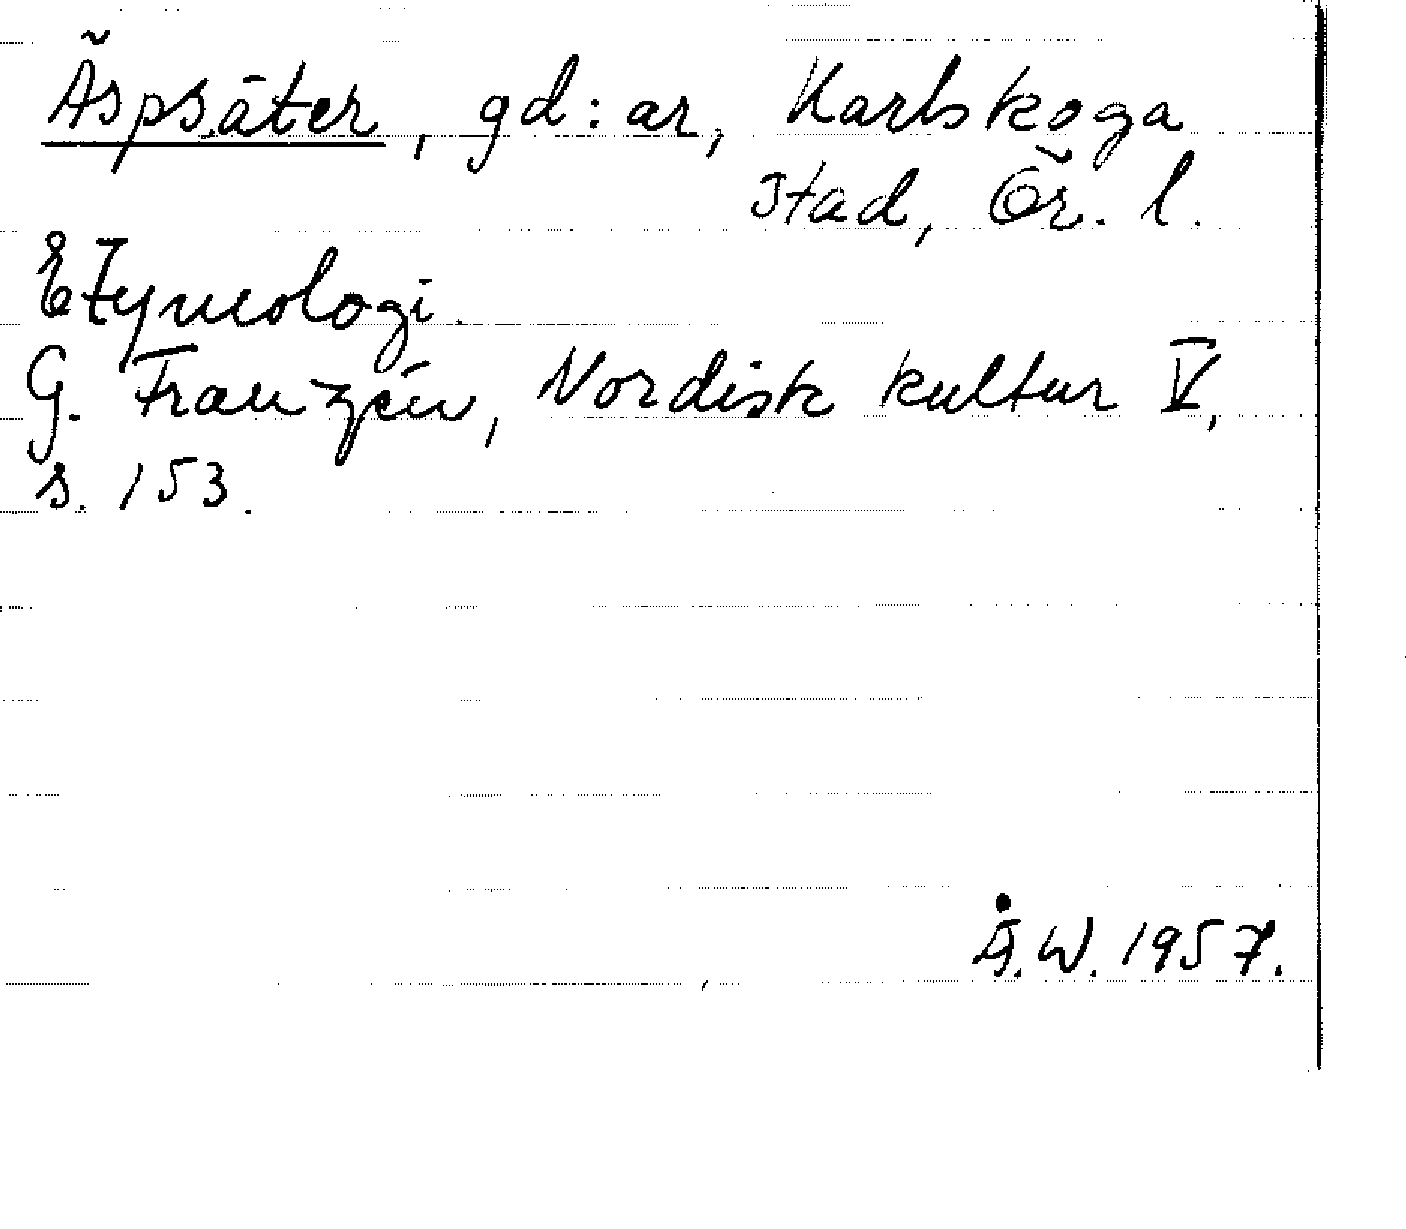 Äspsäter, gd:ar, Karlskoga
stad, Ör. l.
Etymologi.
G. Franzén, Nordisk kultur V,
s. 153.
Å.W. 1957.